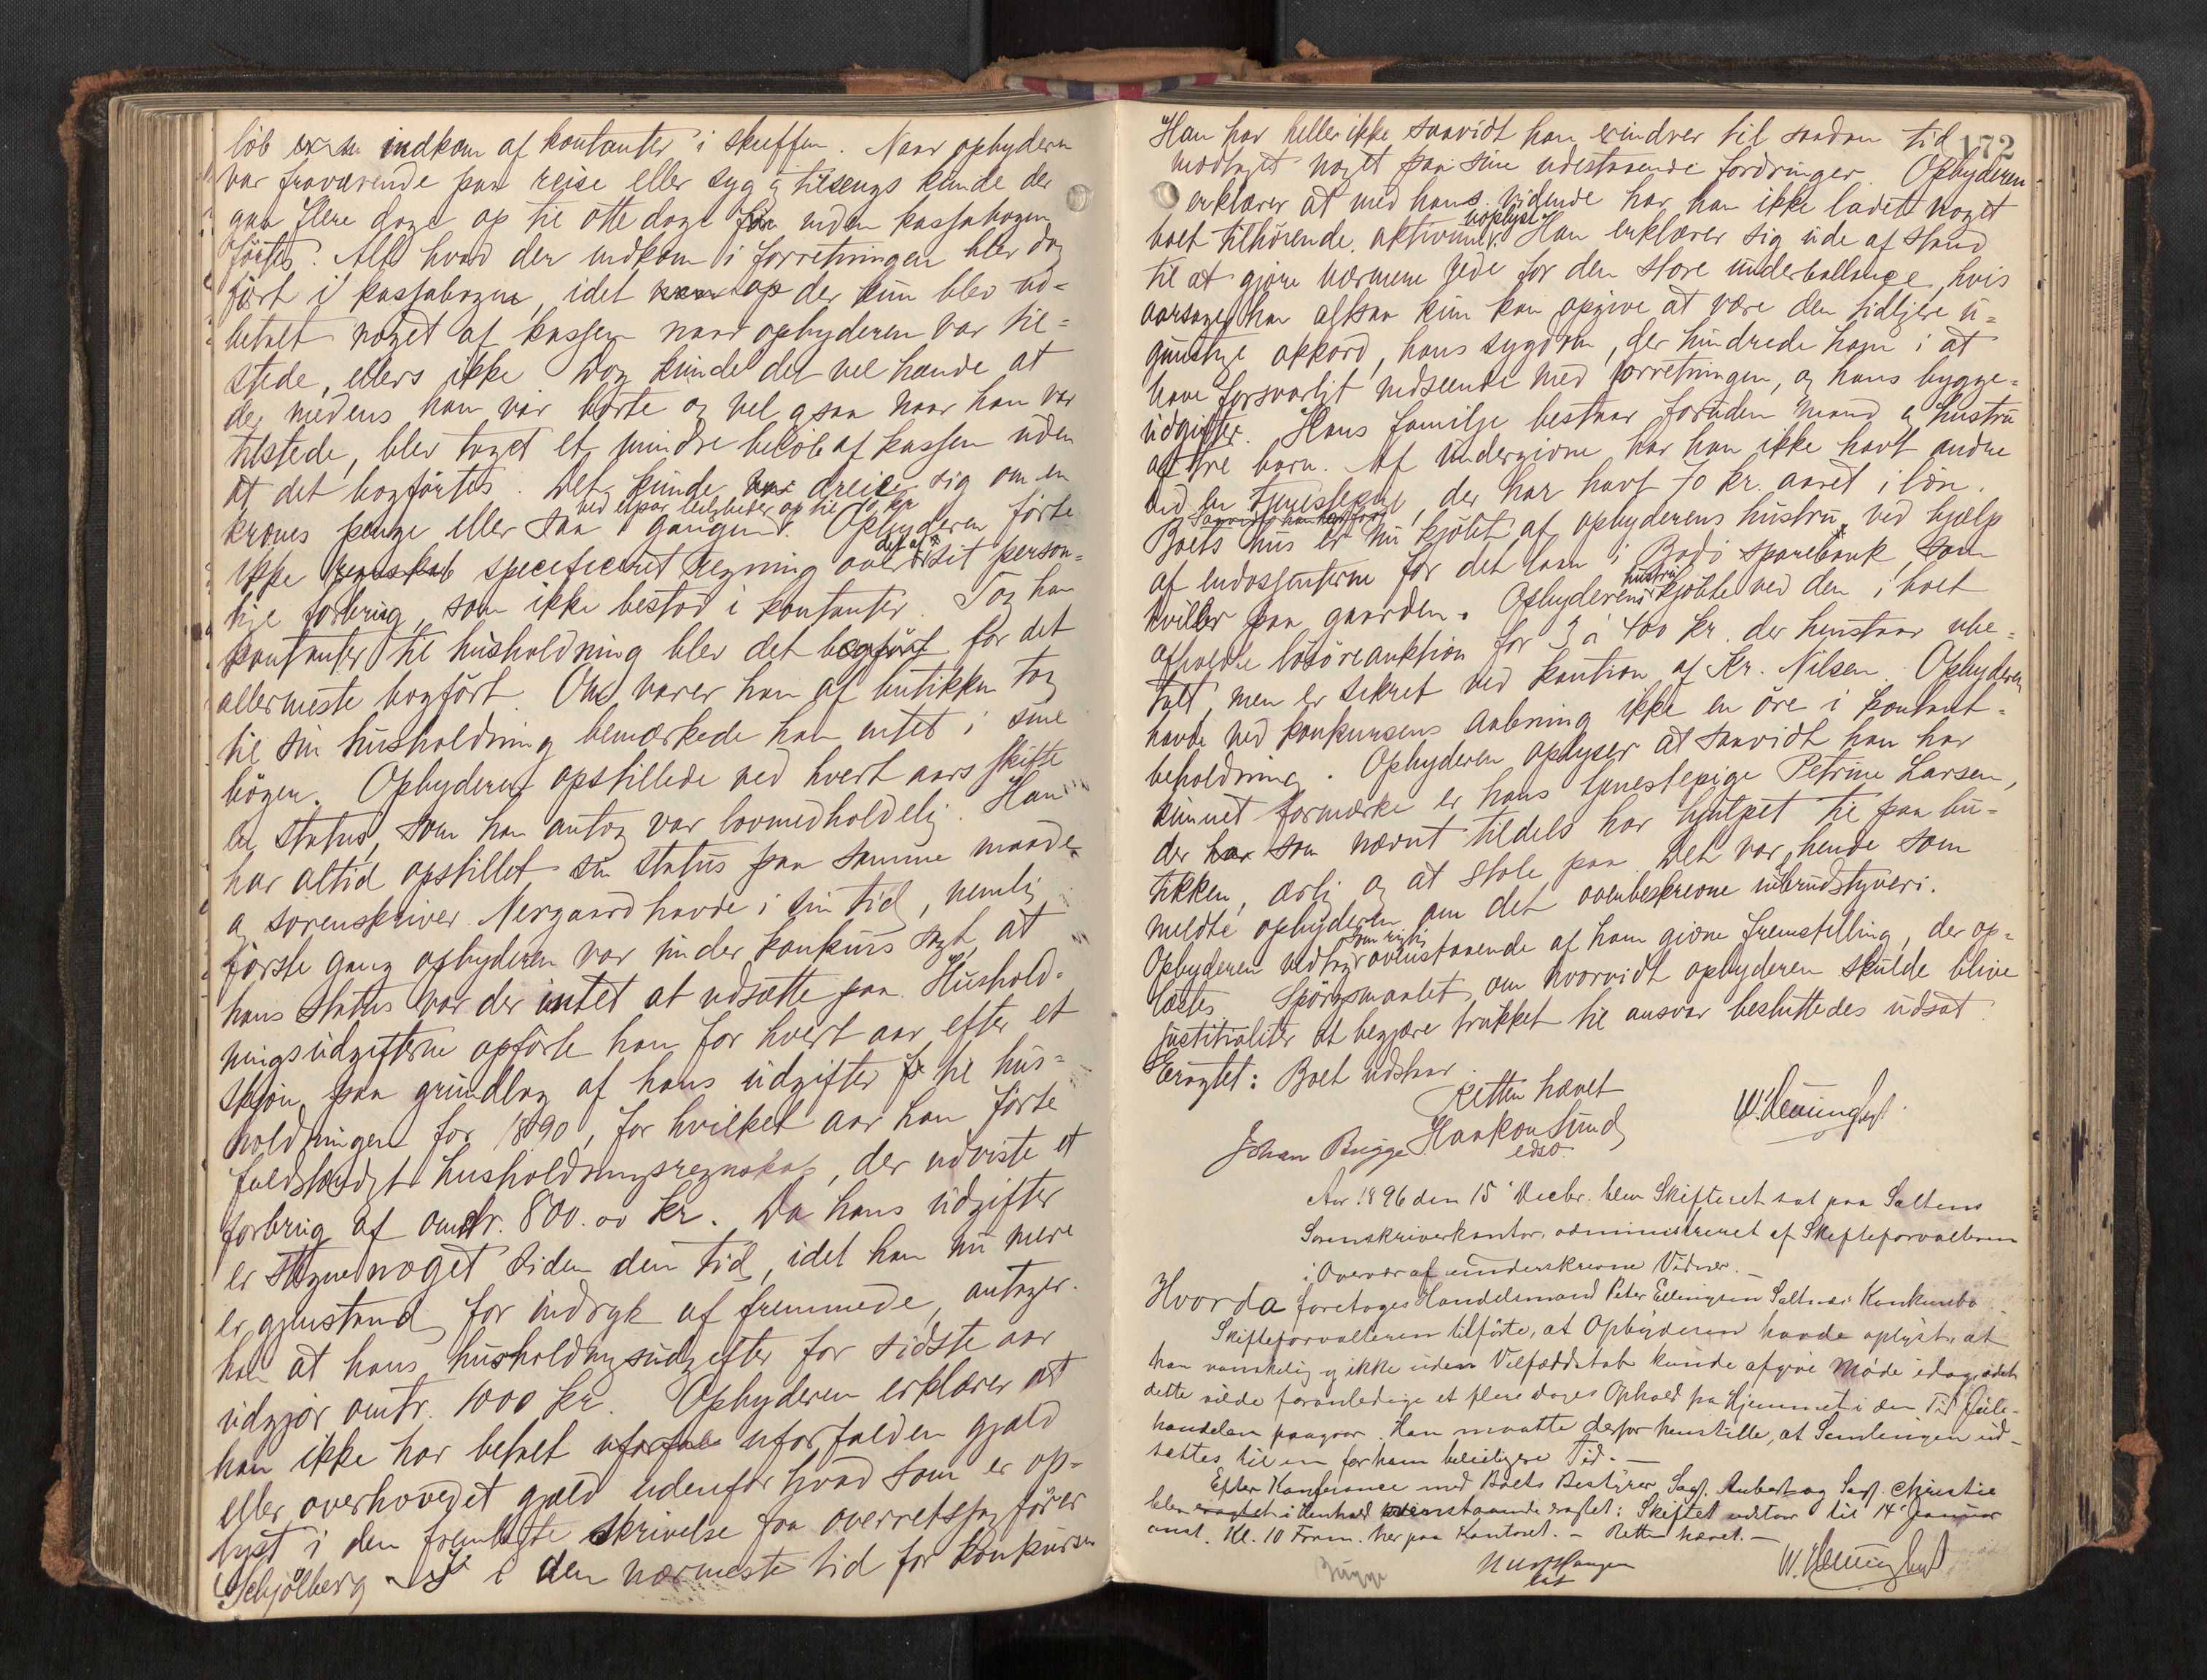 löb indkom af kontanter i skuffen. Naar opbyderen
var fraværende paa reise eller syg og tilsengs kunde der
gaa flere dage op til otte dage før inden kassabogen
førtes. Alt hvad der indkom i forretningen blev dog
ført i kassabogen, idet der kun blev ud=
betalt noget af kassen naar opbyderen var til=
stede, ellers ikke Dog kunde det vel hænde at
der medens han var borte og vel ogsaa naar han var
tilstede, blev taget et mindre beløb af kassen uden
at det bogførtes. Det kunde dreie sig om en
ved etpar leiligheder op til 10 kr
krones penge eller saa i gangen. Opbyderen førte
ikke regnskab specificeret regning over det af sit person=
lige forbrug, som ikke bestod i kontanter. Tog han
kontanter til husholdning blev det bogført for det
allermeste bogført. Om varer han af butikken tog
til sin husholdning bemærkede han intet i sine
bøger. Opbyderen opstillede ved hvert aars skifte
en status, som han antog var lovmedholdelig. Han
har altid opstillet sin status paa samme maade
og sorenskriver Nergaard havde i sin tid, nemlig
første gang opbyderen var under konkurs sagt, at
hans status var der intet at udsætte paa. Hushold=
ningsudgifterne opførte han for hvert aar efter et
skjøn paa grundlag af hans udgifter til hus=
holdningen for 1890, for hvilket aar han førte
fuldstændigt husholdningsregnskab, der udviste et
forbrug af omtr. 800.00 kr. Da hans udgifter
er steget noget siden den tid, idet han nu mere
er gjenstand for indryk af fremmede, antager
han at hans husholdningsudgifter for sidste aar
udgjør omtr. 1000 kr. Opbyderen erklærer at
han ikke har betalt uforfal uforfalden gjæld
eller overhovedet gjæld udenfor hvad som er op=
lyst i den fremlagte skrivelse fra overretssagfører
Schjølberg i den nærmeste tid før konkursen
172
Han har heller ikke saavidt han erindrer til saadan tid
modtaget noget paa sine udestaaende fordringer. Opbyderen
erklærer at med hans vidende har han ikke ladet noget
uoplyst
boet tilhørende aktivum. Han erklærer sig ude af stand
til at gjøre nærmere rede for den store underballance, hvis
aarsager han altsaa kun kan opgive at være den tidligere u=
gunstige akkord, hans sygdom, der hindrede ham i at
have forsvarligt indseende med forretningen, og hans bygge=
udgifter. Hans familje bestaar foruden mand og hustru
af tre barn. Af undergivne har han ikke havt andre
end en tjenestepige, der har havt 70 kr. aaret i løn.
Boets hus er nu kjøbt af opbyderens hustru ved hjælp
af endossenterne for det laan i Bodø sparebank, som
hviler paa gaarden. Opbyderens hustru kjøbte ved den i boet
afholdte løsøreauktion for 3 à 400 kr. der henstaar ube=
talt, men er sikret ved kaution af Kr. Nilsen. Opbyderen
havde ved konkursens aabning ikke en øre i kontant=
beholdning. Opbyderen oplyser at saavidt han har
kunnet formærke er hans tjenestepige Petrine Larsen,
der har som nævnt tildels har hjulpet til paa bu=
tikken, ærlig og at stole paa. Det var hende som
meldte opbyderen om det ovenbeskrevne indbrudstyveri.
som rigtig
Opbyderen vedtager ovenstaaende af ham givne fremstilling, der op=
læstes. Spørgsmaalet om hvorvidt opbyderen skulde blive
justitialiter at begjære trukket til ansvar besluttedes udsat.
Eragtet: Boet udstaar.
Retten hævet
Johan Bugge Haakon Lund
edsv.
Aar 1896 den 15' Decbr. blev Skifteret sat paa Saltens
Sorenskriverkontor, administreret af Skifteforvalteren
i Overvær af underskrevne Vidner. —
Hvorda foretoges Handelsmand Peter Ellingsen Saltnes Konkursbo
Skifteforvalteren tilførte, at Opbyderen havde oplyst, at
han vanskelig og ikke uden Velfærdstab kunde afgive Møde idag, idet
dette vilde foranledige et flere dages Ophold fra Hjemmet i den Tid Jule-
handelen paagaar. Han maatte derfor henstille, at Samlingen ud-
sættes til en for ham beleiligere Tid. —
Efter Konference med Boets Bestyrer Sagf. Aubert og Sagf. Christie
blev eragtet i Henhold ovenstaaende eragtet: Skiftet udstaar til 14' Januar
anst. Kl. 10 Form. her paa Kontoret. — Retten hævet. —
Bugge